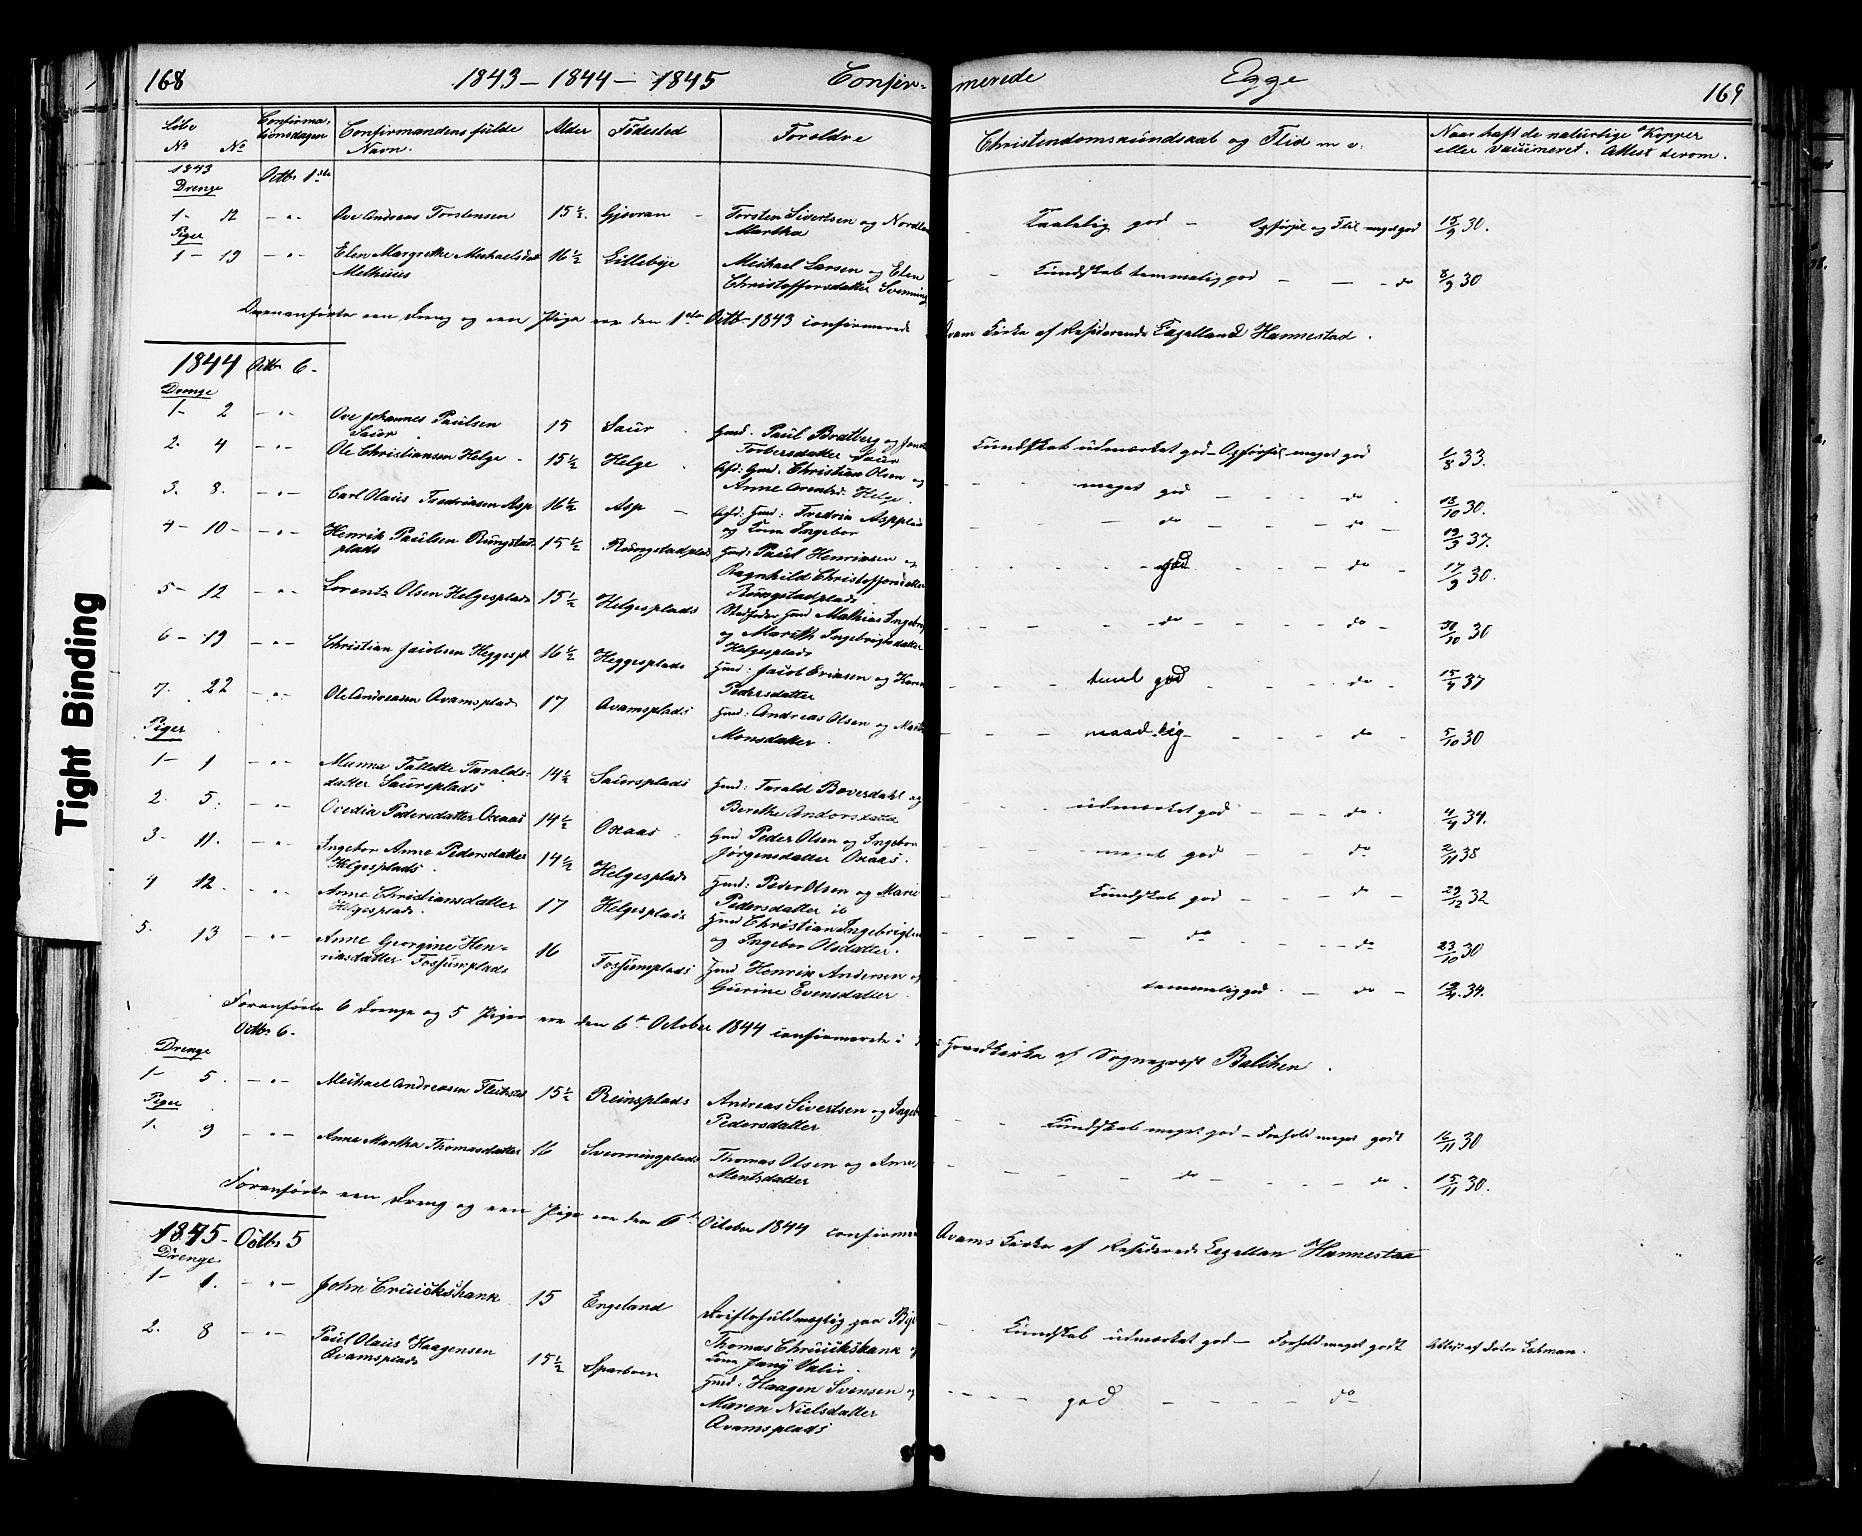 168 1843 – 1844 – 1845 Confir- merede Egge 169
Löbe No No
Confirmationsdagen
Confirmandens fulde Navn.
Alder
Födested
Foroldre
Christendomskundskab og Flid m v.
Naar haft de naturlige Kopper eller vaccineret. Attest derom.
1843 Octbr 1ste
Drenge
1- 12 – " – Ove Andreas Torstensen 15 ½ Gjövran – Torsten Sivertsen og Martha Taalelig god – Opförsel og Flid meget god 15/9 30.
Piger
1- 19 – " – Elen Margrethe Michaelsdat Melhuus 16 ½ Lillebye Michael Larsen og Elen Christoffersdatter Svenning Kundskab temmelig god – – do 8/9 30
Ovenanförte een Dreng og een Pige ere den 1ste Octbr 1843 confirmerede Qvam Kirke af Residerende Capelland Hannestad.
1844 Octbr 6-
Drenge
1- 2 – " – Ove Johannes Paulsen Saur 15 Saur Gmd. Paul Bratberg og Torbersdatter Saur Kundskab udmærket god – Opförsel meget god 1/8 33.
2. 4 – " – Ole Christiansen Helge 15 ½ Helge Gmd. Christian Olsen og Anne Arentsd. Helge meget god – do 13/10 30.
3. 8. – " – Carl Olaus Fredriksen Asp 16 ½ Asp Gmd: Fredrik Aspplads og Kone Ingebor – do – do 12/3 37.
4- 10- – " – Henrik Paulsen Rungstadplads 15 ½ Rungstadplads Gmd: Paul Henriksen og Ragnhild Christoffersdatter Rungstadplads god – do 17/9 30.
5- 12 – " – Lorentz Olsen Helgesplads 15 ½ Helgesplads Stedfader Gmd Mathias Ingebrig og Marith Ingebrigtsdatter Helgesplads do – do 30/10 30
6- 19 – " – Christian Jacobsen Heggespl 16 ½ Heggesplads Gmd: Jacob Eriksen og Karen Pedersdatter taal god – do 15/4 37
7. 22 – " – Ole Andreasen Qvamsplads 17 Qvamsplads Gmd: Andreas Olsen og Monsdatter maadelig – do 5/10 30
Piger
1- 1 – " – Munna Tallette Taraldsdatter Saursplads 14 ½ Saursplads Gmd: Tarald Boversdahl og Berethe Andorsdatter udmærket god – do 4/4 34.
2. 5. – " – Ovedia Pedersdatter Oxaas 14 ½ Oxaas Gmd Peder Olsen og Ingebor Jörgensdatter Oxaas. meget god – do 2/11 38
3- 11. – " – Ingebor Anne Pedersdatter Helgesplads. 14 ½ Helgesplads Gmd: Peder Olsen og Marie Pedersdatter ib Kundskab god – do 29/12 32
4 12. – " – Anne Christiansdatter Helgesplads. 17 Helgesplads Gmd Christian Ingebrigtsen og Ingebor Olsdatter. do – do 23/10 30
5. 13 – " – Anne Georgine Henriksdatter Fossumplads 16 Fossumplads Gmd Henrik Andersen og Gurine Evensdatter temmelig god – do 12/4 34.
Foranförte 6 Drenge og 5 Piger ere den 6te October 1844 confirmerede i Hovedkirke af Sognepræst Balchen.
Octbr 6-
Drenge
1- 5. – " – Michael Andreasen 15 ½ Reinsplads Andreas Sivertsen og Pedersdatter Kundskab meget god – Forhold meget godt 16/11 30
Piger
1. 9 – " – Anne Martha Thomasdatter 16 Svenningplads Thomas Olsen og Anne Mentsdatter – do – do 15/11 30.
Foranförte een Dreng og een Pige ere den 6te October 1844 confirmer Qvams Kirke af Resideerende Capellan Hannestad
1845- Octbr 5
Drenge
1- 1. – " – John Cruickshank 15 Engeland Driftsfuldmægtig paa Thomas Chruickshank og Kone Jany Kundskab udmærket god – Forhold meget godt Attest af Doktor
2. 8 – " – Paul Olaus Haagensen Qvamsplads 15 ½ Sparboen Gmd. Haagen Svensen og Maren Nielsdatter Qvamsplads god – do
Tight Binding